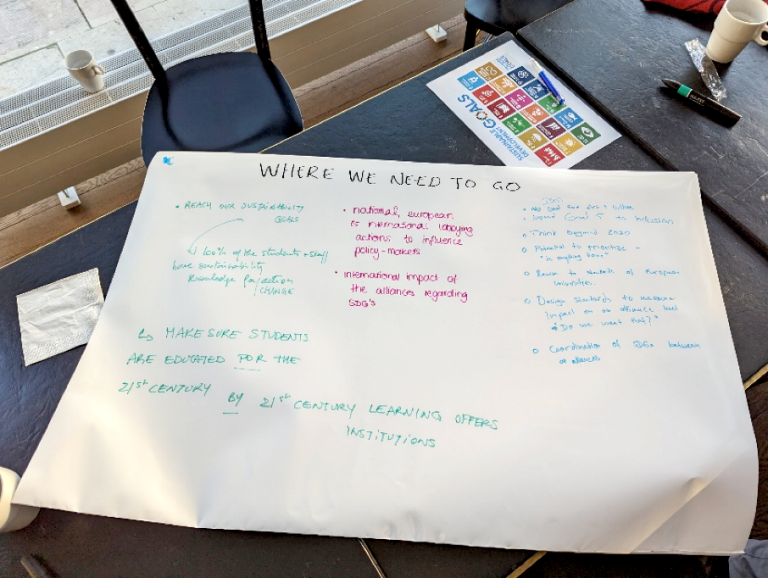 WHERE WE NEED TO GO
• REACH OUR SUSTAINABILITY
GOALS
100% of the students + staff
have sustainability
knowledge for action
CHANGE
↳ MAKE SURE STUDENTS
ARE EDUCATED FOR THE
21st CENTURY BY 21st CENTURY LEARNING OFFERS
INSTITUTIONS
• national, european
& international lobbying
actions to influence
policy-makers
• international impact of
the alliances regarding
SDG's
Goal 5 to inclusion
Think beyond 2030
Potential to prioritize
"is anything done"
of European
universities
Design standards to measure
impact on alliance level
"Do we want this?"
Coordination of between
SUSTAINABLE
DEVELOPMENT
GOALS